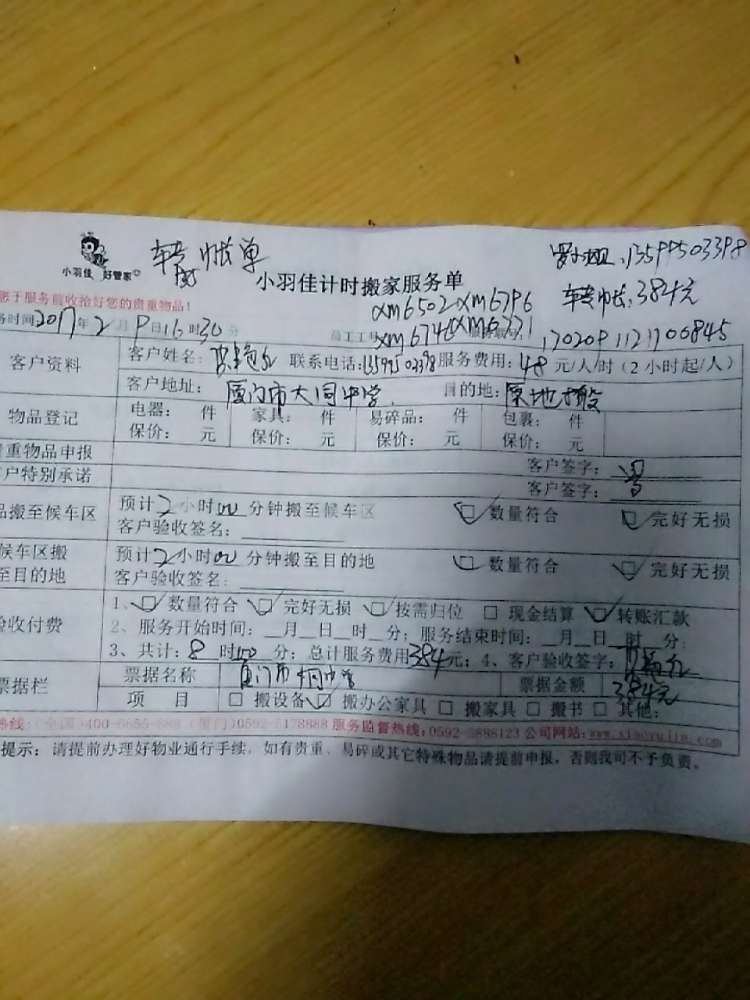 转帐单
13599503398
小羽佳 好管家
小羽佳计时搬家服务单
转帐,384元
您于服务前收拾好您的贵重物品!
务时间2017年2月9日16时30分
xm6502 xm6796
员工工号 xm6746
170209
客户资料
客户姓名: 联系电话:13599503398 服务费用:48元/人/时(2小时起/人)
客户地址: 厦门市大同中学 目的地: 原地搬
物品登记
电器: 件 家具: 件 易碎品: 件 包裹: 件
保价: 元 保价: 元 保价: 元 保价: 元
贵重物品申报 客户签字:
客户特别承诺 客户签字:
品搬至候车区
预计2小时00分钟搬至候车区 数量符合 完好无损
客户验收签名:
候车区搬至目的地
预计2小时00分钟搬至目的地 数量符合 完好无损
客户验收签名:
验收付费
1、数量符合 完好无损 按需归位 现金结算 转账汇款
2、服务开始时间: 月 日 时 分; 服务结束时间: 月 日 时 分;
3、共计:8时00分; 总计服务费用384元; 4、客户验收签字:
票据栏
票据名称 厦门市大同中学 票据金额 384元
项 目 搬设备 搬办公家具 搬家具 搬书 其他:
热线:(全国)400-6655-888 (厦门)0592-5178888 服务监督热线:0592-5888123 公司网站:www.xiaoyujia.com
提示: 请提前办理好物业通行手续, 如有贵重、易碎或其它特殊物品请提前申报, 否则我司不予负责。